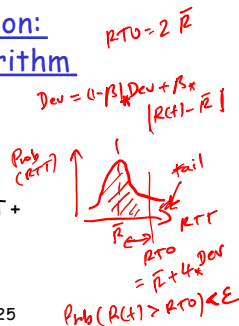 on:
rithm
RTO = 2 R̄
Dev = (1-β)*Dev + β*
|R(t) - R̄|
Prob
(RTT)
tail
RTT
R̄
RTO
= R̄ + 4*Dev
+
25
Prob(R(t) > RTO) < ε